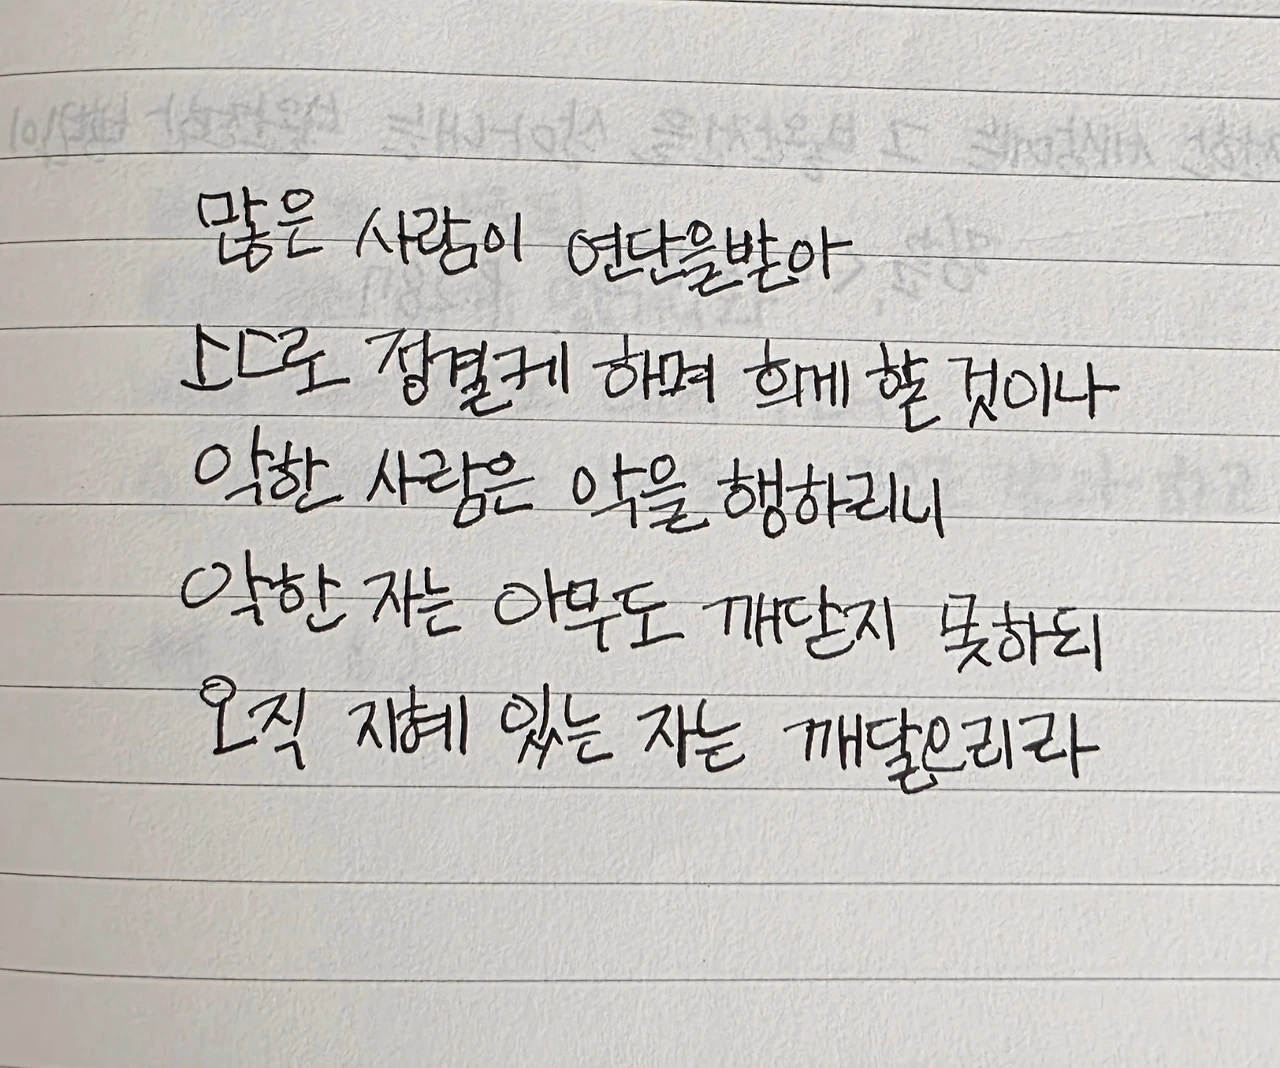 많은 사람이 연단을받아
스스로 정결케 하며 희게 할 것이나
악한 사람은 악을 행하리니
악한 자는 아무도 깨닫지 못하되
오직 지혜 있는 자는 깨달으리라